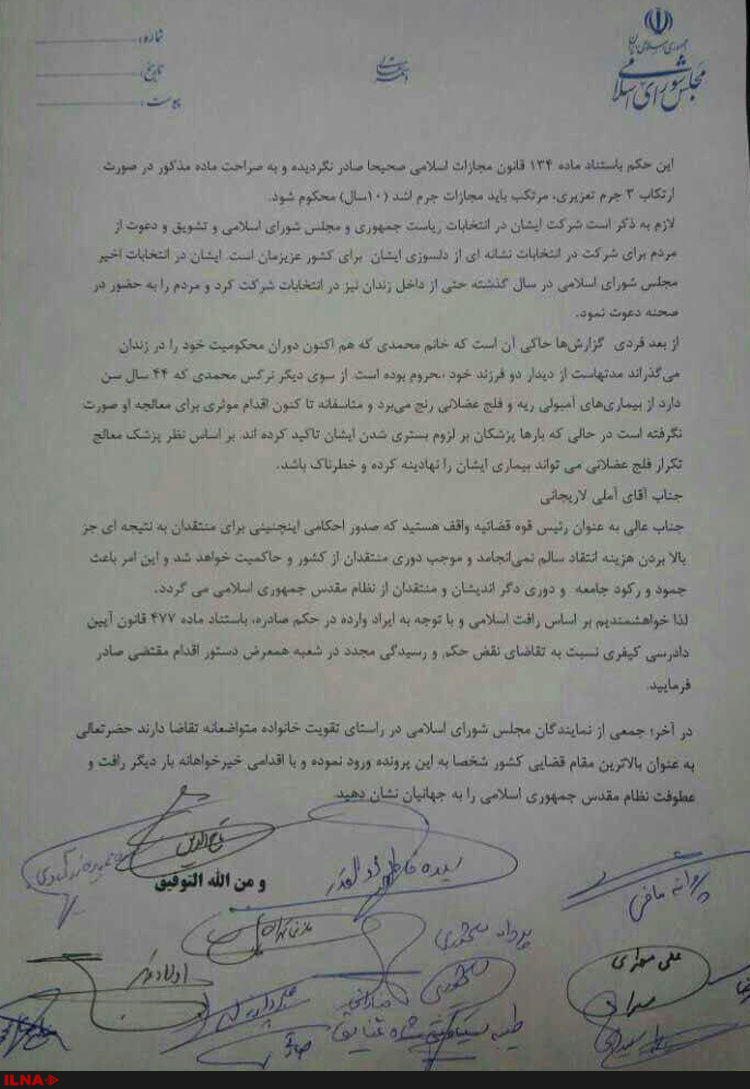 جمهوری اسلامی ایران
مجلس شورای اسلامی
شماره:
تاریخ:
پیوست:
این حکم باستناد ماده ۱۳۴ قانون مجازات اسلامی صحیحا صادر نگردیده و به صراحت ماده مذکور در صورت
ارتکاب ۳ جرم تعزیری، مرتکب باید مجازات جرم اشد (۱۰سال) محکوم شود.
لازم به ذکر است شرکت ایشان در انتخابات ریاست جمهوری و مجلس شورای اسلامی و تشویق و دعوت از
مردم برای شرکت در انتخابات نشانه ای از دلسوزی ایشان برای کشور عزیزمان است. ایشان در انتخابات اخیر
مجلس شورای اسلامی در سال گذشته حتی از داخل زندان نیز در انتخابات شرکت کرد و مردم را به حضور در
صحنه دعوت نمود.
از بعد فردی گزارش‌ها حاکی آن است که خانم محمدی که هم اکنون دوران محکومیت خود را در زندان
می‌گذراند مدتهاست از دیدار دو فرزند خود محروم بوده است. از سوی دیگر نرگس محمدی که ۴۴ سال سن
دارد از بیماری‌های آمبولی ریه و فلج عضلانی رنج می‌برد و متاسفانه تا کنون اقدام موثری برای معالجه او صورت
نگرفته است در حالی که بارها پزشکان بر لزوم بستری شدن ایشان تاکید کرده اند. بر اساس نظر پزشک معالج
تکرار فلج عضلانی می تواند بیماری ایشان را نهادینه کرده و خطرناک باشد.
جناب آقای آملی لاریجانی
جناب عالی به عنوان رئیس قوه قضائیه واقف هستید که صدور احکامی اینچنینی برای منتقدان به نتیجه ای جز
بالا بردن هزینه انتقاد سالم نمی‌انجامد و موجب دوری منتقدان از کشور و حاکمیت خواهد شد و این امر باعث
جمود و رکود جامعه و دوری دگر اندیشان و منتقدان از نظام مقدس جمهوری اسلامی می گردد.
لذا خواهشمندیم بر اساس رافت اسلامی و با توجه به ایراد وارده در حکم صادره، باستناد ماده ۴۷۷ قانون آیین
دادرسی کیفری نسبت به تقاضای نقض حکم و رسیدگی مجدد در شعبه همعرض دستور اقدام مقتضی صادر
فرمایید.
در آخر؛ جمعی از نمایندگان مجلس شورای اسلامی در راستای تقویت خانواده متواضعانه تقاضا دارند حضرتعالی
به عنوان بالاترین مقام قضایی کشور شخصا به این پرونده ورود نموده و با اقدامی خیرخواهانه بار دیگر رافت و
عطوفت نظام مقدس جمهوری اسلامی را به جهانیان نشان دهید.
و من الله التوفیق
تاج الدین
سیده فاطمه ذوالقدر
پروانه مافی
علی مطهری
اولادقباد
ILNA